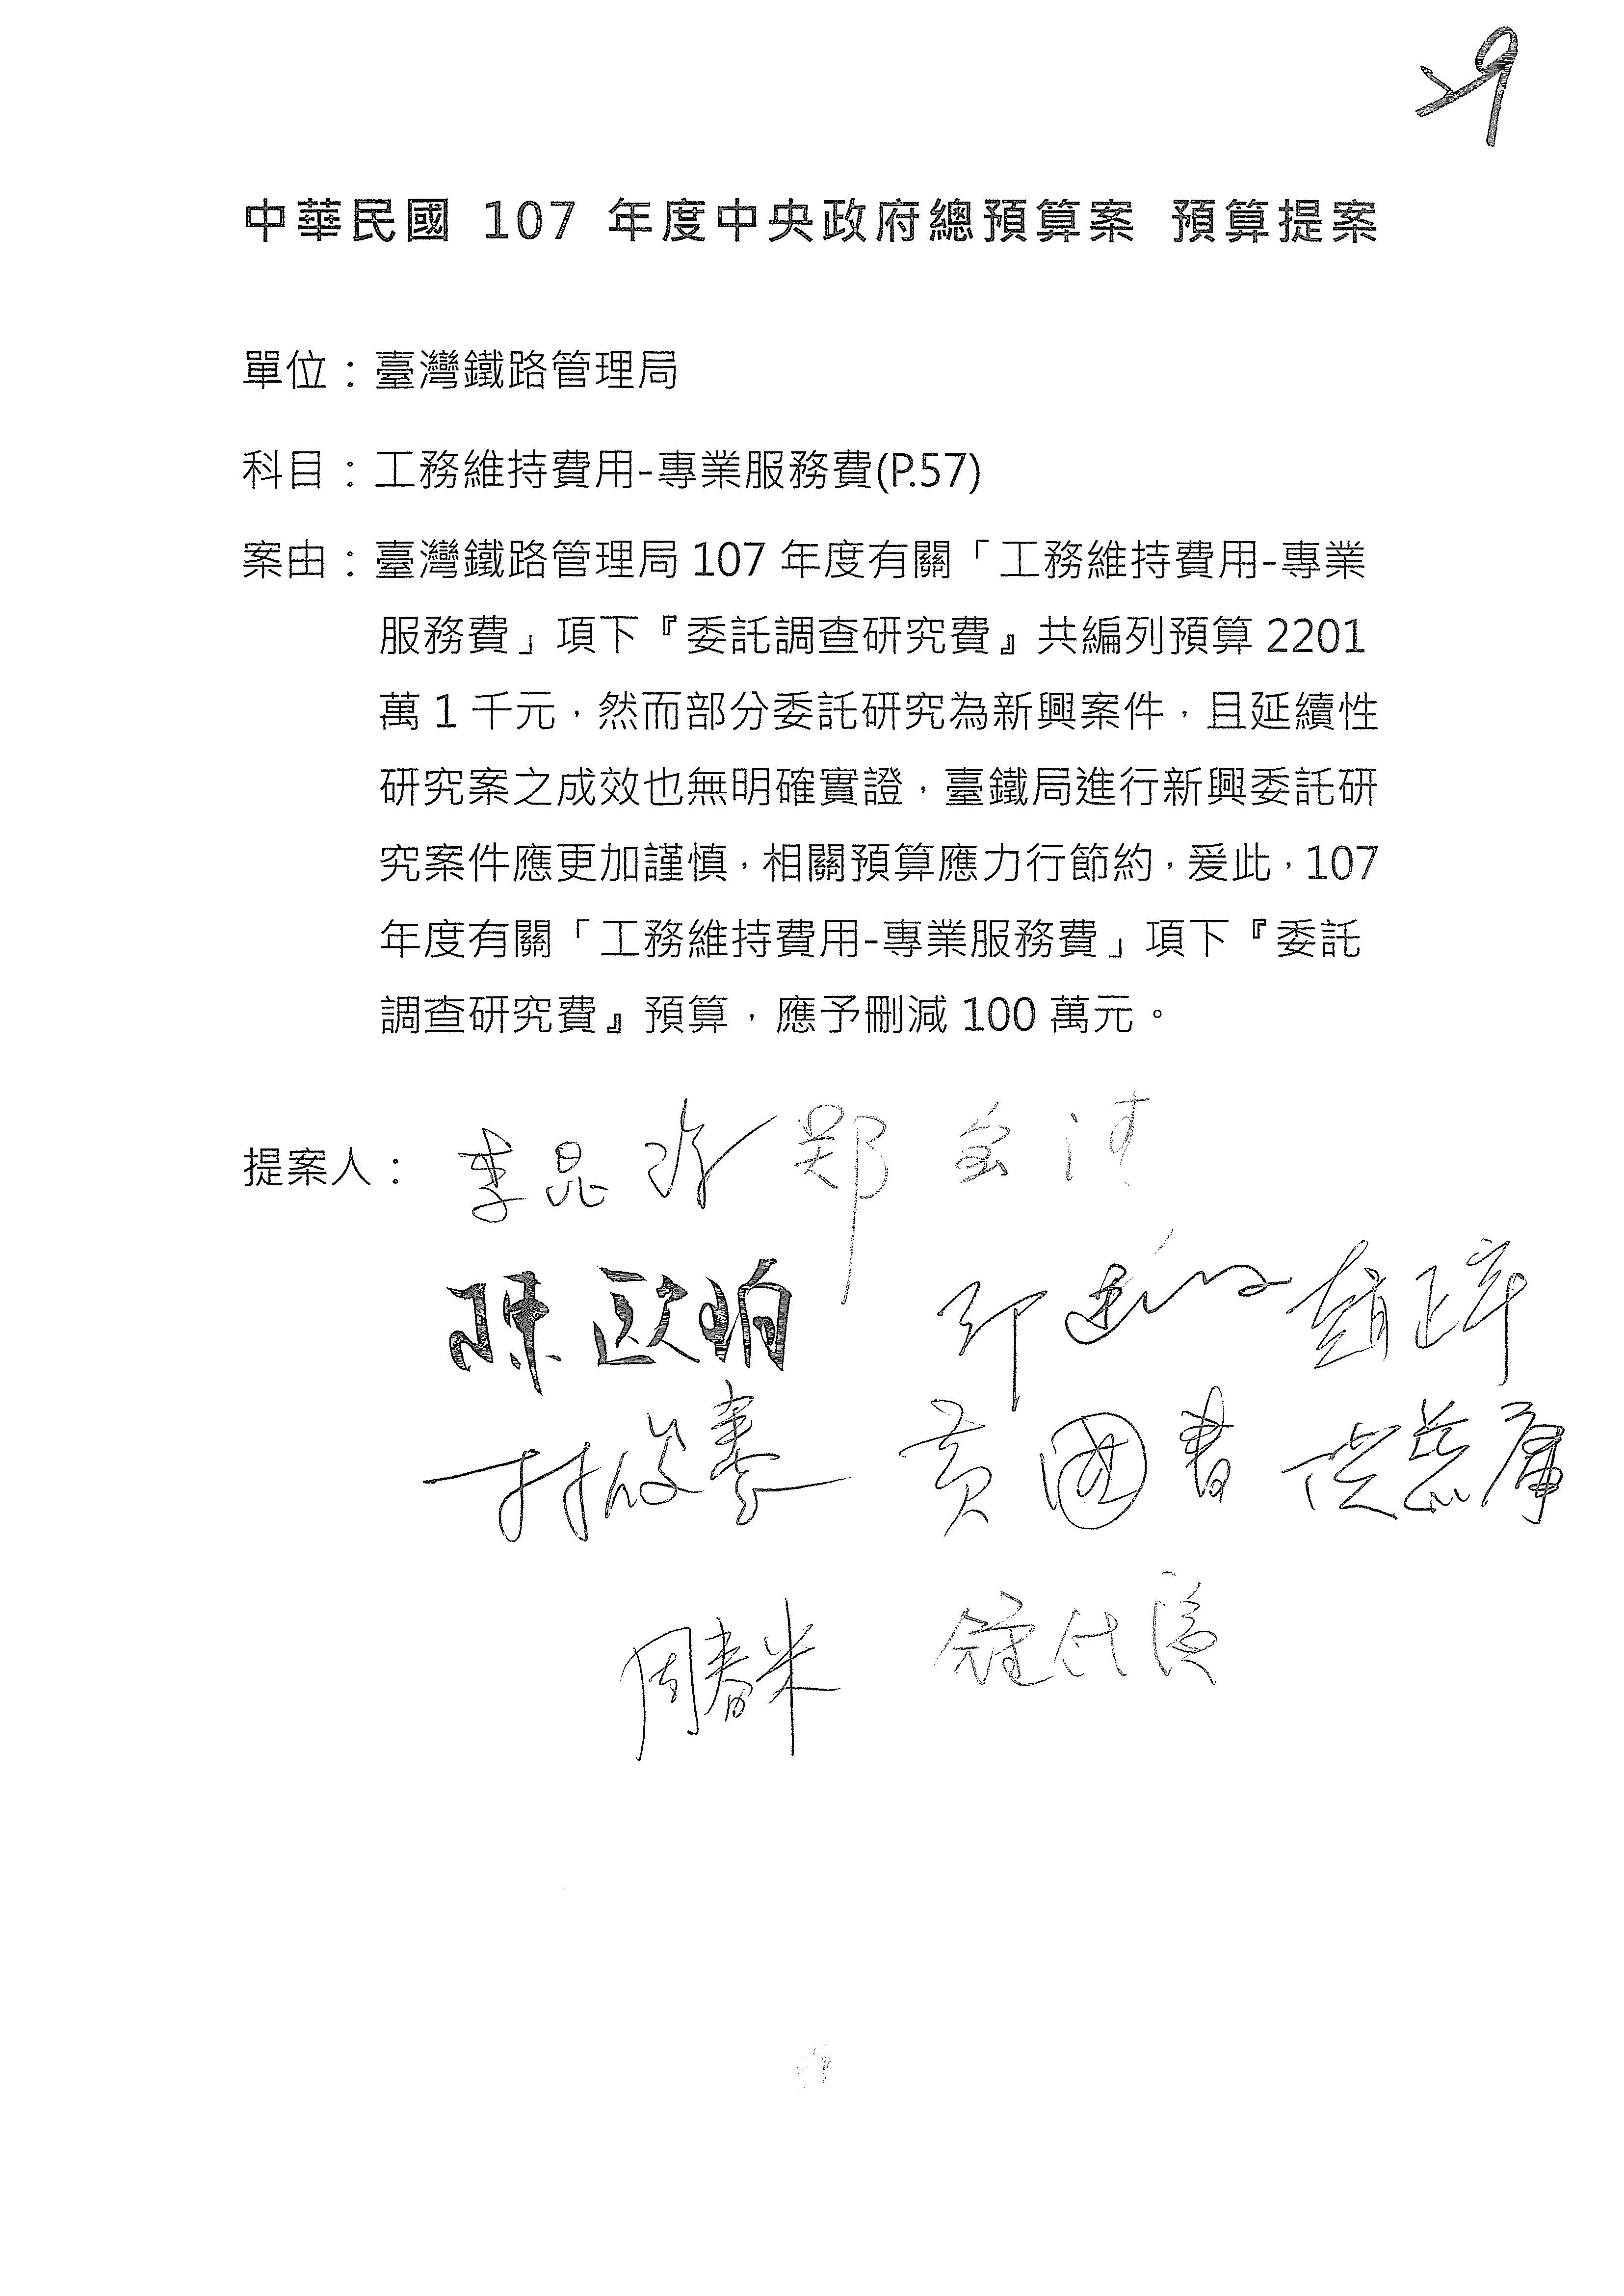 29
中華民國 107 年度中央政府總預算案 預算提案
單位：臺灣鐵路管理局
科目：工務維持費用-專業服務費(P.57)
案由：臺灣鐵路管理局 107 年度有關「工務維持費用-專業
服務費」項下『委託調查研究費』共編列預算 2201
萬 1 千元，然而部分委託研究為新興案件，且延續性
研究案之成效也無明確實證，臺鐵局進行新興委託研
究案件應更加謹慎，相關預算應力行節約，爰此，107
年度有關「工務維持費用-專業服務費」項下『委託
調查研究費』預算，應予刪減 100 萬元。
提案人： 李昆澤 鄭宝清
陳歐珀 趙正宇
林俊憲 黃國書 洪慈庸
周春米 鍾佳濱